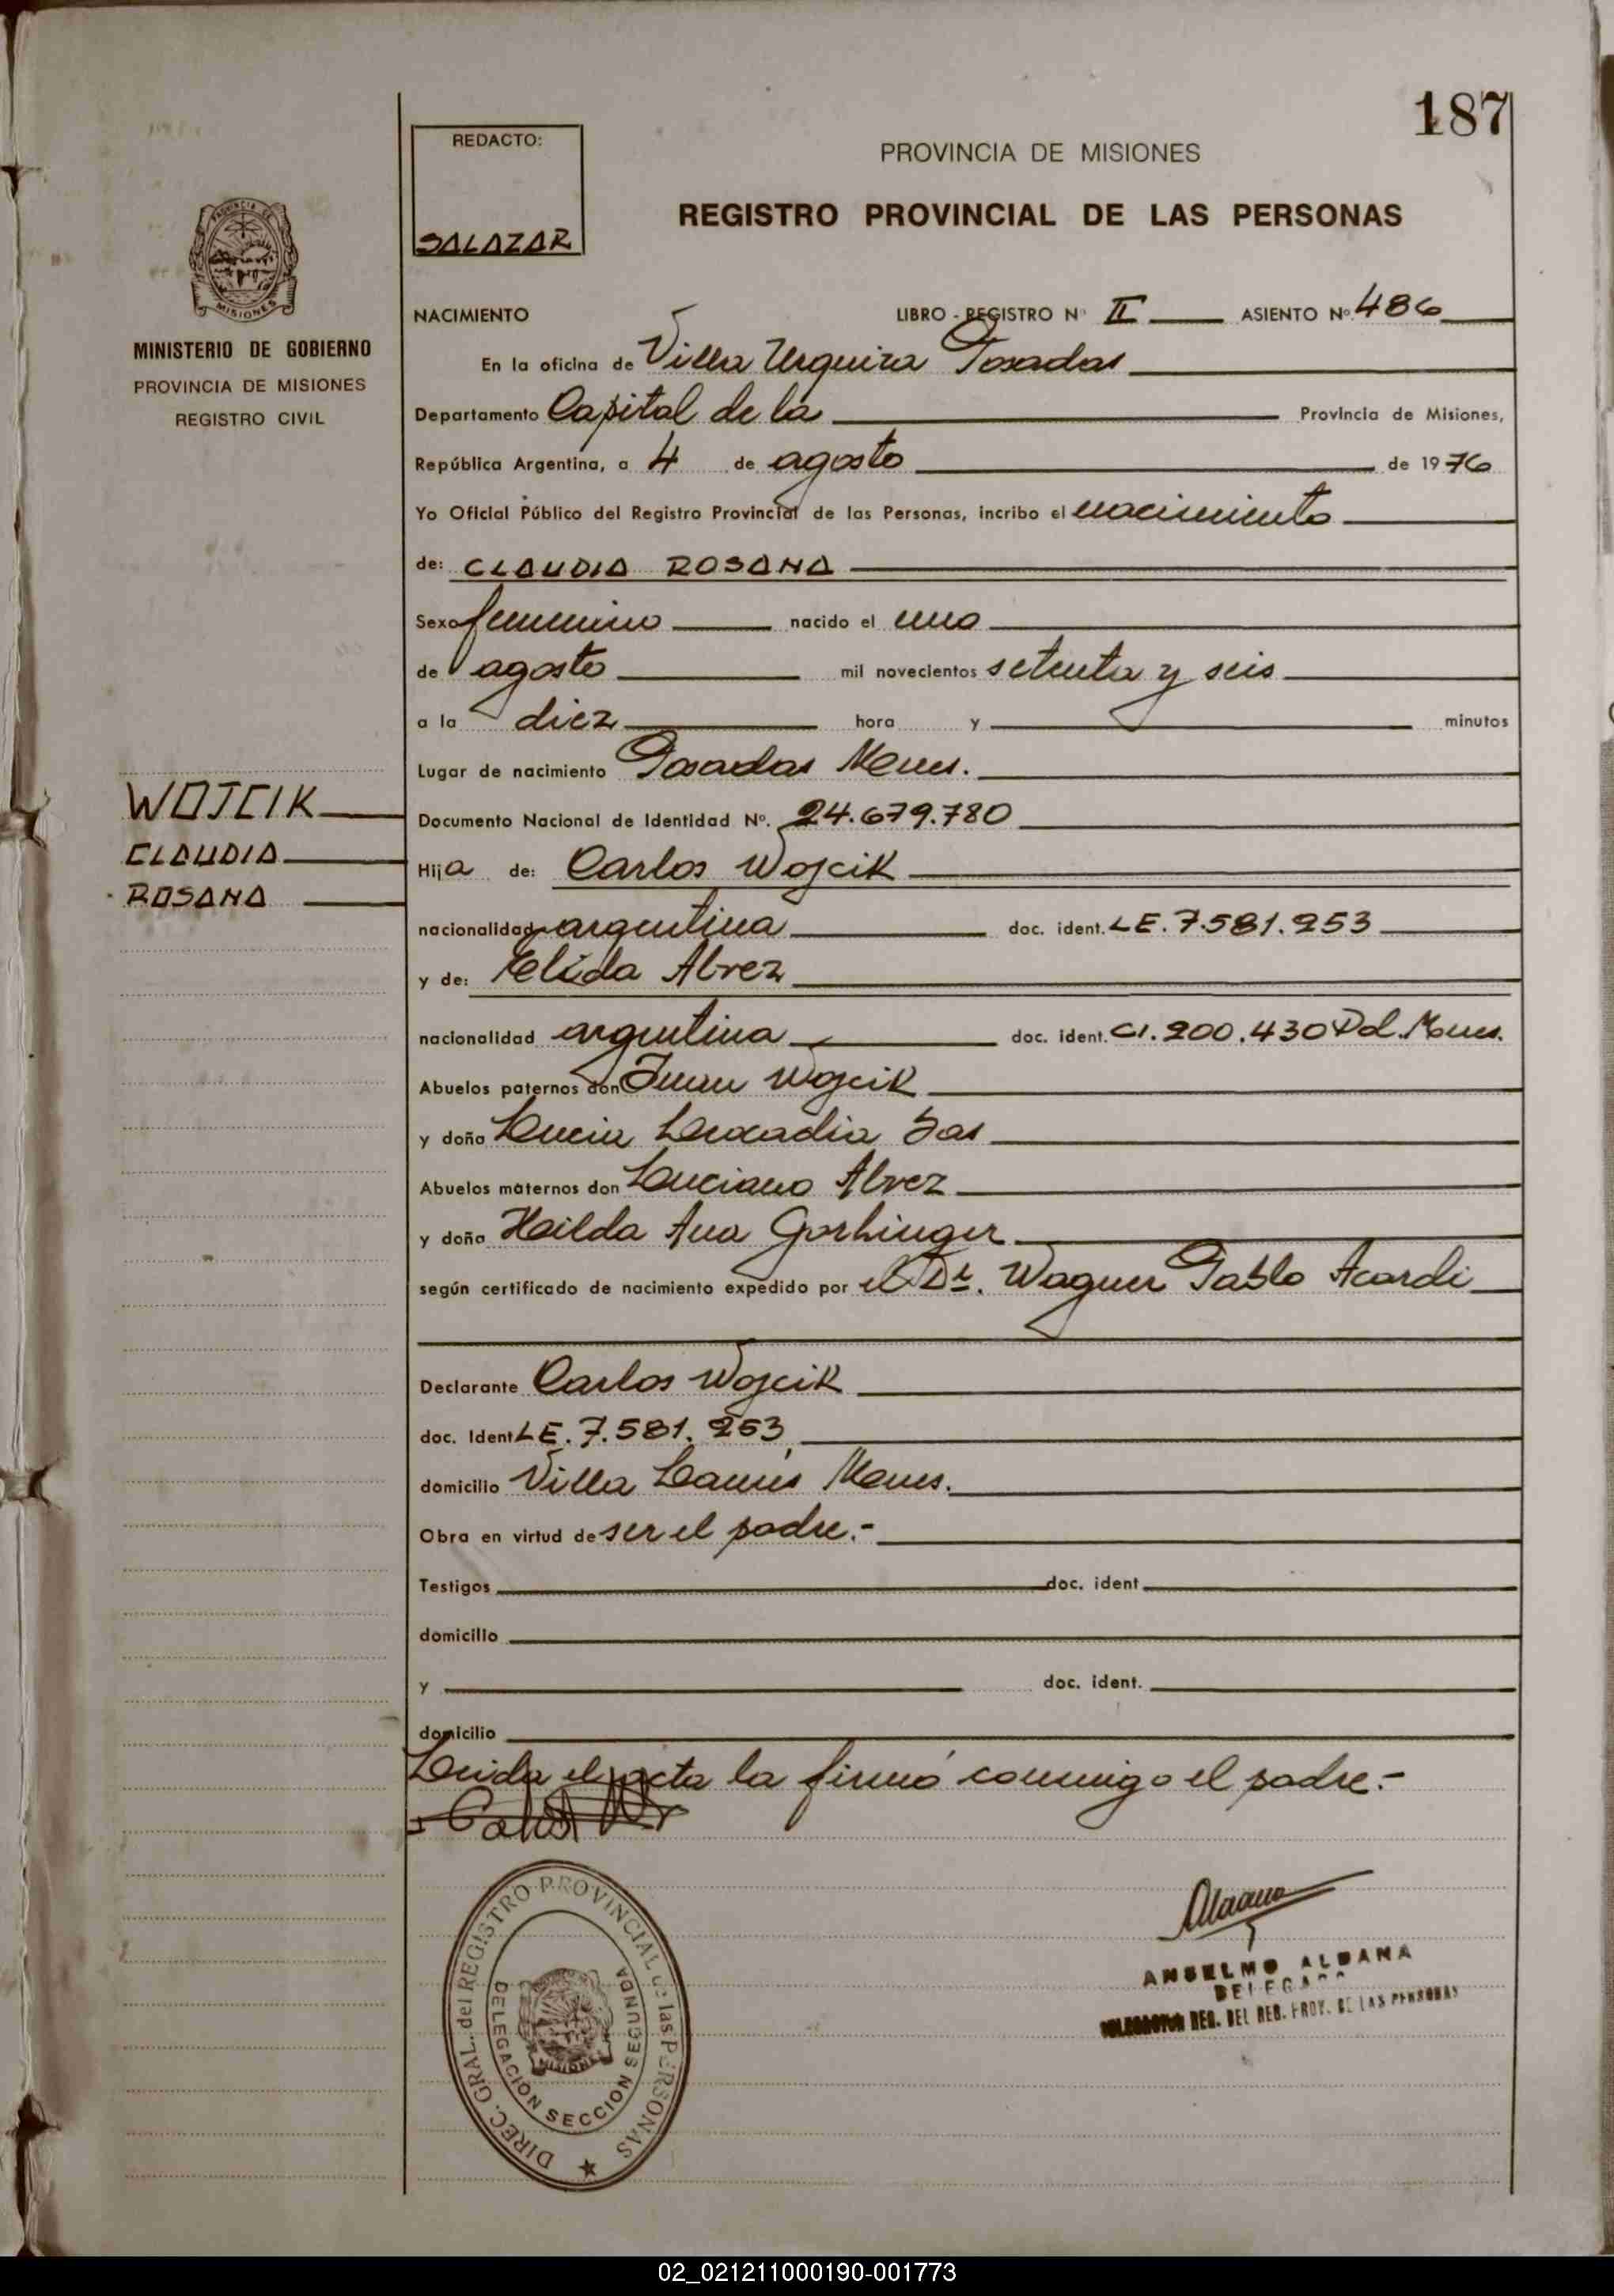 187
REDACTO:
SALAZAR
PROVINCIA DE MISIONES
REGISTRO PROVINCIAL DE LAS PERSONAS
PROVINCIA DE
MISIONES
MINISTERIO DE GOBIERNO
PROVINCIA DE MISIONES
REGISTRO CIVIL
NACIMIENTO LIBRO - REGISTRO Nº II ASIENTO Nº 486
En la oficina de Villa Urquiza Posadas
Departamento Capital de la Provincia de Misiones,
República Argentina, a 4 de agosto de 1976
Yo Oficial Público del Registro Provincial de las Personas, incribo el nacimiento
de: CLAUDIA ROSANA
Sexo femenino nacido el uno
de agosto mil novecientos setenta y seis
a la diez hora y minutos
Lugar de nacimiento Posadas Mnes.
WOJCIK
CLAUDIA
ROSANA
Documento Nacional de Identidad Nº. 24.679.780
Hija de: Carlos Wojcik
nacionalidad argentina doc. ident. LE. 7.581.253
y de: Elida Alvez
nacionalidad argentina doc. ident. CI. 200.430 Pol. Mnes.
Abuelos paternos don Juan Wojcik
y doña Lucia Leocadia Sas
Abuelos maternos don Luciano Alvez
y doña Hilda Ana
según certificado de nacimiento expedido por el Dr. Wagner Pablo Acardi
Declarante Carlos Wojcik
doc. Ident LE. 7.581.253
domicilio Villa Lanús Mnes.
Obra en virtud de ser el padre.-
Testigos doc. ident
domicilio
y doc. ident.
domicilio
Leida el acta la firmó conmigo el padre.-
DIREC. GRAL. del REGISTRO PROVINCIAL de las PERSONAS
DELEGACION SECCION SEGUNDA
MISIONES
ANSELMO ALDANA
DELEGADO
REG. DEL REG. PROV. DE LAS PERSONAS
02_021211000190-001773